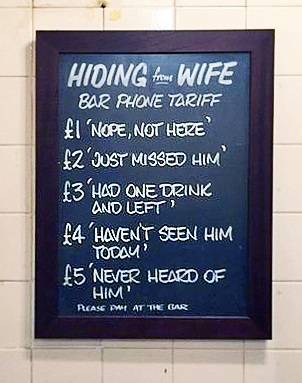 HIDING from WIFE
BAR PHONE TARIFF
£1 'NOPE, NOT HERE'
£2 'JUST MISSED HIM'
£3 'HAD ONE DRINK
AND LEFT'
£4 'HAVEN'T SEEN HIM
TODAY'
£5 'NEVER HEARD OF
HIM'
PLEASE PAY AT THE BAR